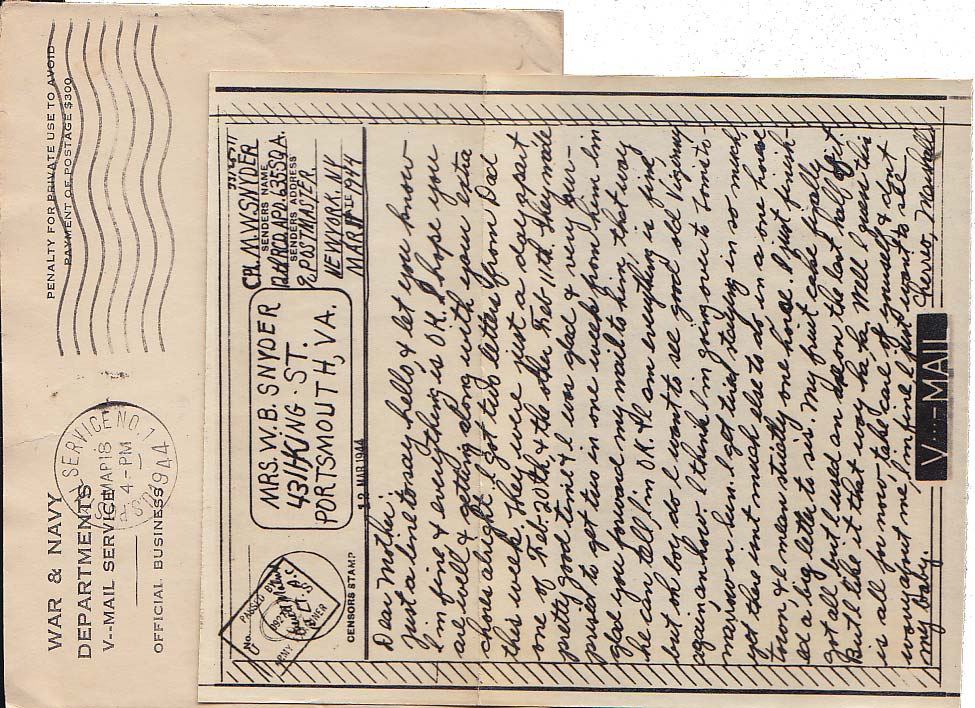 PENALTY FOR PRIVATE USE TO AVOID
PAYMENT OF POSTAGE $300
WAR & NAVY
DEPARTMENTS
V---MAIL SERVICE
OFFICIAL BUSINESS
SERVICE NO. 1
MAR 18
4-PM
1944
No.
PASSED BY
ARMY EXAMINER
CENSORS STAMP
MRS. W. B. SNYDER
431 KING ST.
PORTSMOUTH, VA.
CPL. M.W. SNYDER
SENDERS NAME
SENDERS ADDRESS
% POSTMASTER,
NEW YORK, NY
MAR 11 1944
DATE
12 MAR 1944
Dear Mother:
Just a line to say hello & let you know
I'm fine & everything is O.K. I hope you
are well & getting along with your extra
chores alright. I got two letters from Dad
this week. They were just a day apart
one of Feb. 20th, & the other Feb 11th. They made
pretty good time & I was glad & very sur-
prised to get two in one week from him. I'm
glad you forward my mail to him, that way
he can tell I'm O.K. th am everything is fine,
but oh boy do I want to see good old Virginny
again, anhow. I think I'm going over to town to-
morrow on Sun. I get tired staying in so much
yet there isnt much else to do in a one horse
town, & I mean actually one horse. I just finish-
ed a big letter to sis. My fruit cake finally
got all but I used an on the last half of it
But I like it that way ha, ha. Well I guess this
is all for now take care of yourself & dont
worry about me, I'm fine I just want to see
my baby. Cheerio, Marshall
V---MAIL